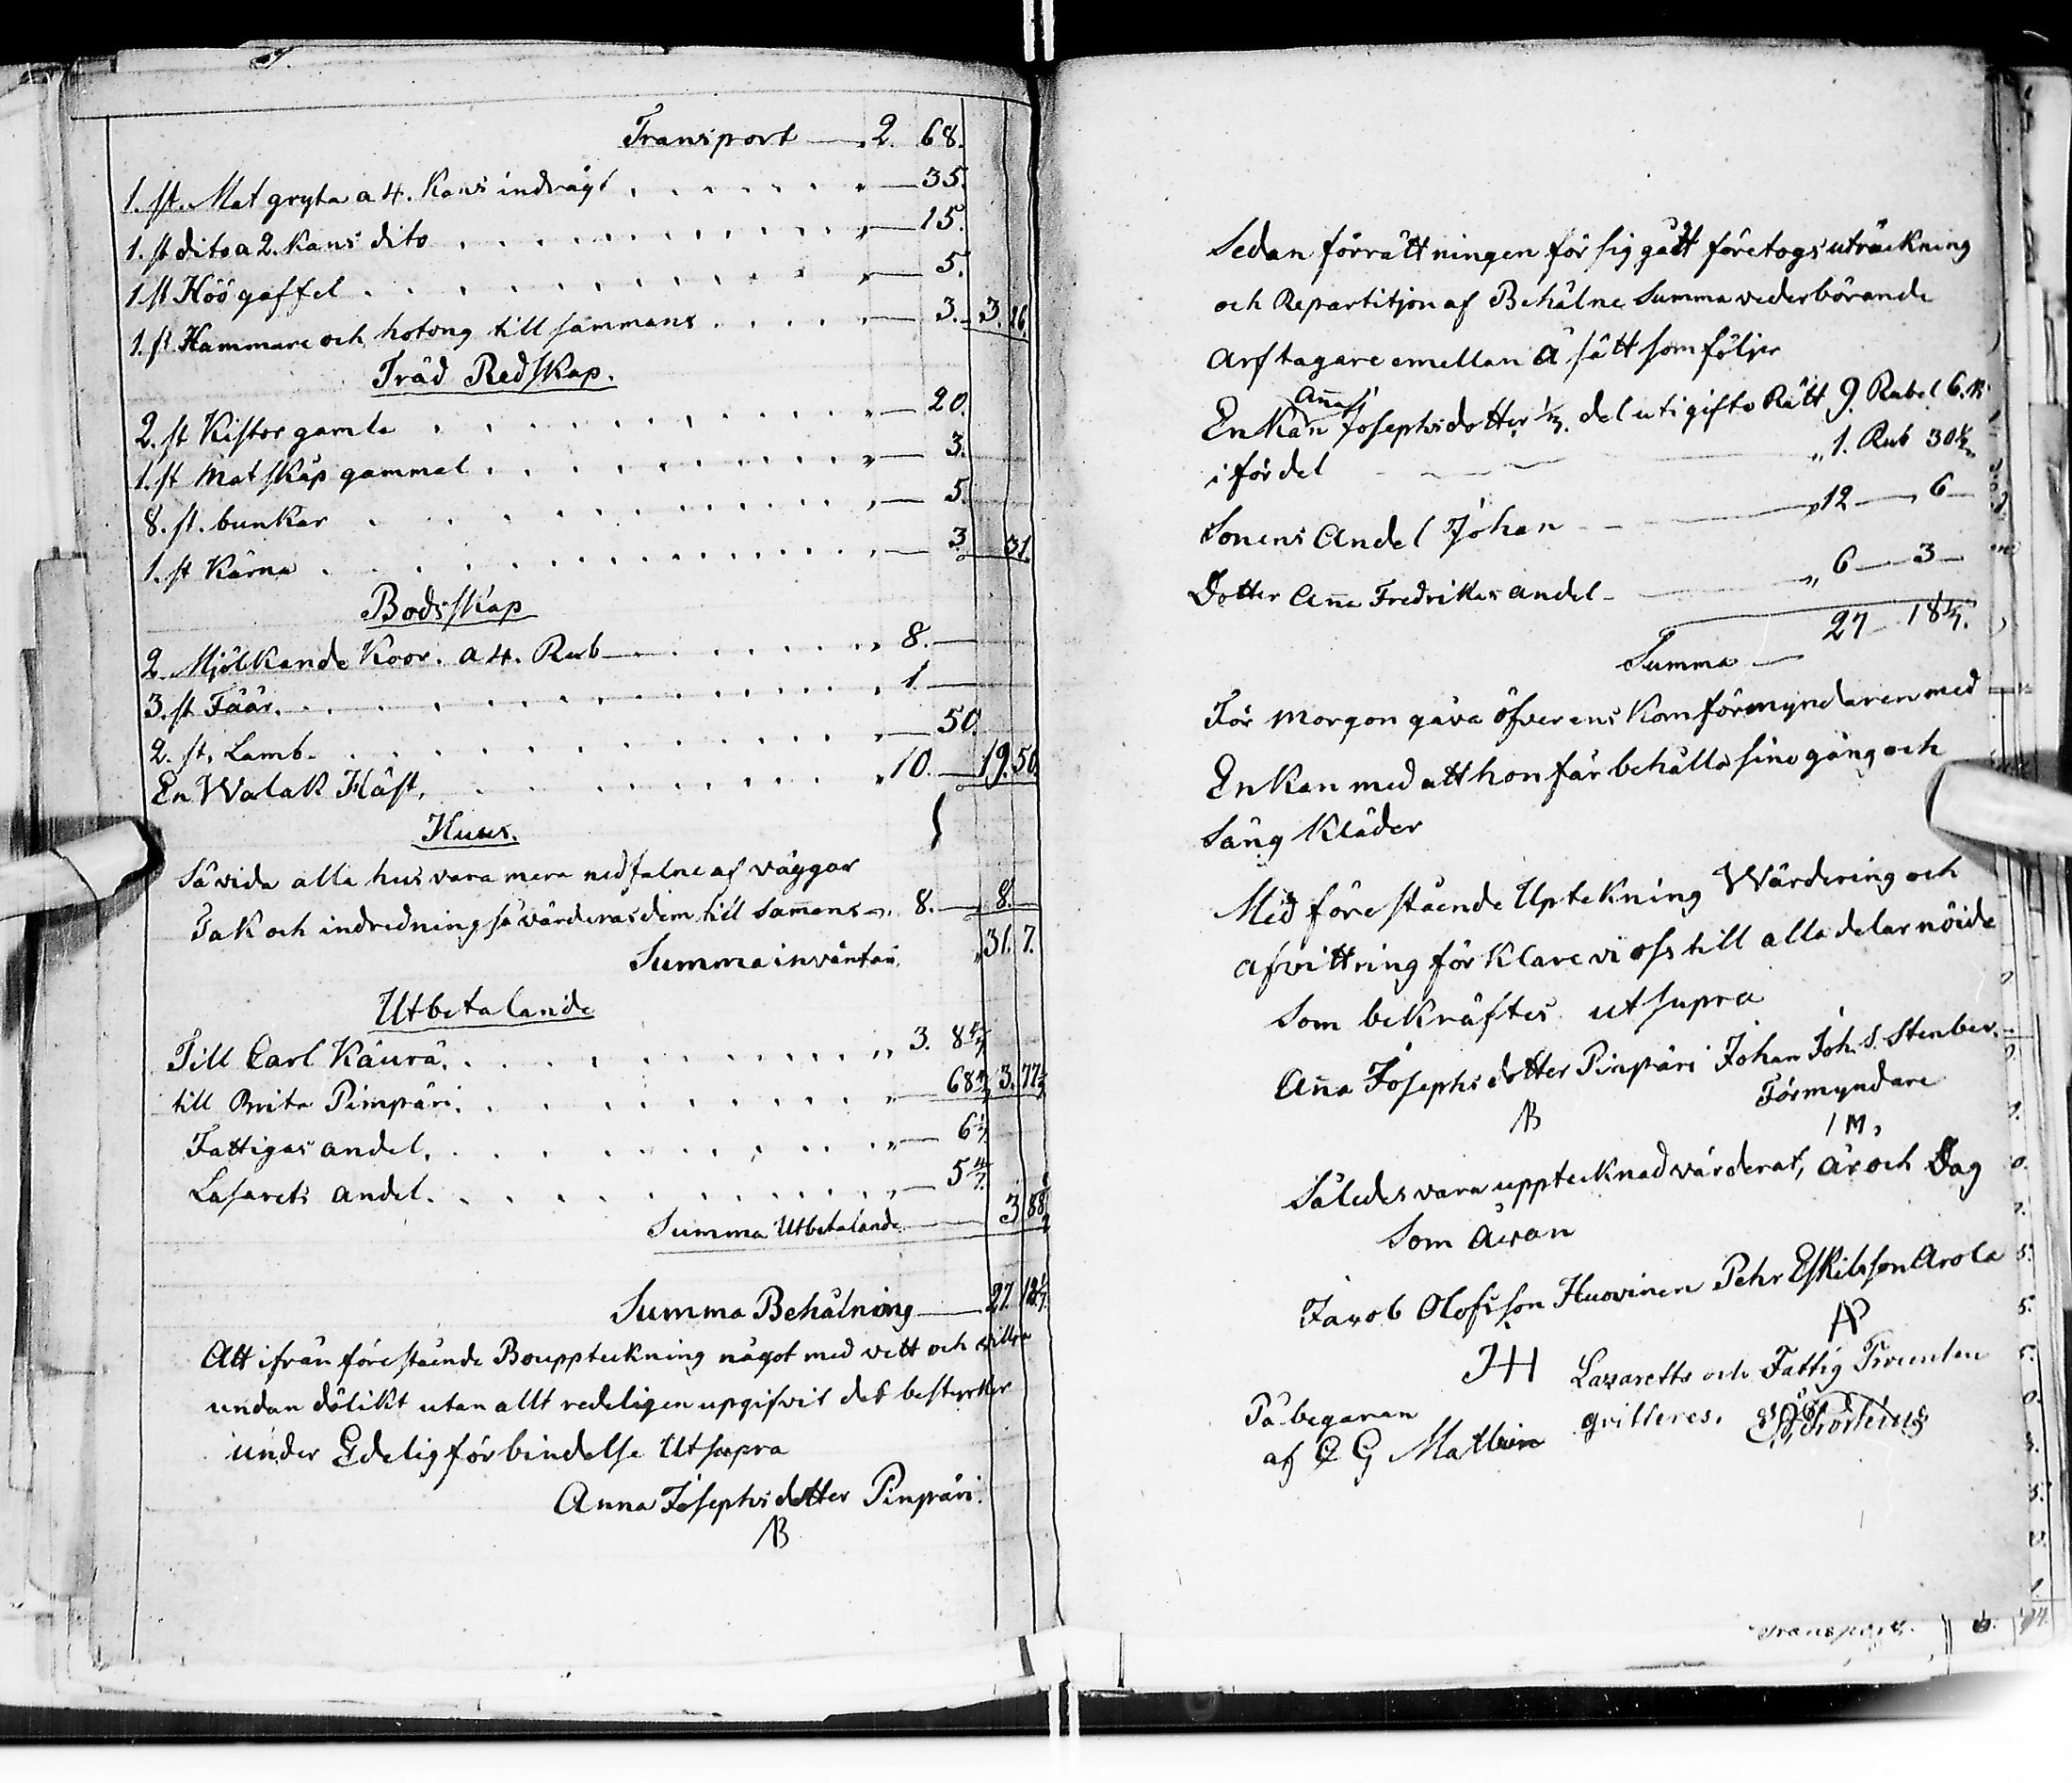 Transport — 2. 68.
1. st. Mat gryta a 4. Kans indrägt . . . . . . " — 35.
1. st dito a 2. Kans dito . . . . . . " — 15.
1 st Höögaffel . . . . . . " — 5.
1. st Hammare och hotong till sammans . . . . " — 3. 3. 26.
Träd Redskap.
2. st Kistor gamla . . . . . . " — 20.
1. st Matskåp gammal . . . . . . " — 3.
8. st. bunkar . . . . . . " — 5.
1. st Kärna . . . . . . " — 3. 31.
Bodsskap
2. Mjölkande Koor. a 4. Rub — . . . . " 8. —
3. st Fäär. . . . . . . " 1. —
2. st. Lamb. . . . . . . " — 50.
En Walak Häst. . . . . . . " 10. — 19. 50.
Huus.
Så vida alla hus vara mera nedfalne af väggar
Tak och indredning så värderas dem till samens —. 8. — 8. —
Summa inväntari. " 31. 7.
Utbetalande
Till Carl Käurä. . . . . . . " 3. 8 4/7
till Brita Pimpäri. . . . . . . " — 68 4/7 3. 77 1/7
Fattigas andel. . . . . . . " — 6 1/7
Lasarets andel. . . . . . . " — 5 4/7
Summa Utbetalande — 3 88 6/7
Summa Behålning — 27. 18 1/7
Att ifrån förestående Bouppteckning något med vett och villia
undan dölikt utan allt redeligen upgifvit det bestyrker
under Edelig förbindelse Utsupra
Anna Josephsdotter Pinpäri.
AB
Sedan förrättningen för sig gått företogs uträckning
och Repartitjon af Behålne Summa vederbörande
arftagare emellan å sätt som följer
Anna
Enkan Josephsdotter 1/3. del uti gifto Rätt 9. Rubel 6. K:
i fördel — " 1. Rub 30 1/2
Sonens Andel Johan — " 12 — " 6 —
Dotter Anna Fredrikas andel — " 6 — 3 —
Summa — 27 — 18 1/7.
För morgongåva öfverens Kom förmyndaren med
Enkan med att hon får behålla sine gång och
Säng Kläder
Med förestående Uptekning Wärdering och
afvittring förklare vi oss till alla delar nöide
Som bekräftes utsupra
Anna Josephsdotter Pinpäri Johan Joh. S. Stenber.
AB Förmyndare
IM,
Således vara upptecknad värderat, år och Dag
Som åwan
Jacob Olofsson Huovinen Pehr Eskilsson Arola
JH AP
På begäran Lazaretts och Fattig Procenten
af C G Mathein qvitteres.
Transport.